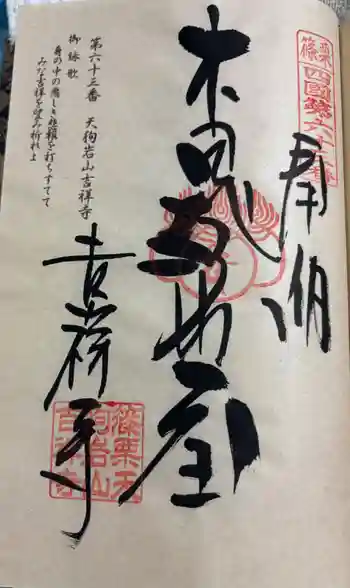 篠栗四國第六十三番
奉納
本尊毘沙門堂
第六十三番 天狗岩山吉祥寺
御詠歌
身の中の悪しき悲報を打ちすてて
みな吉祥を望み祈れよ
吉祥寺
篠栗天狗岩山吉祥寺